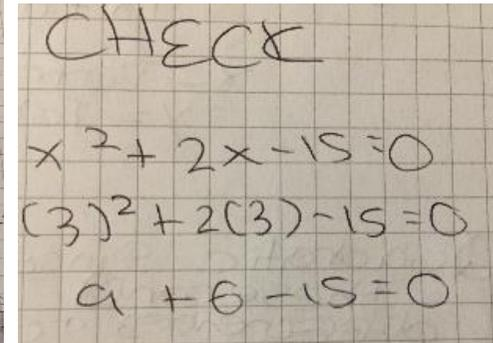 CHECK
x² + 2x - 15 = 0
(3)² + 2(3) - 15 = 0
9 + 6 - 15 = 0